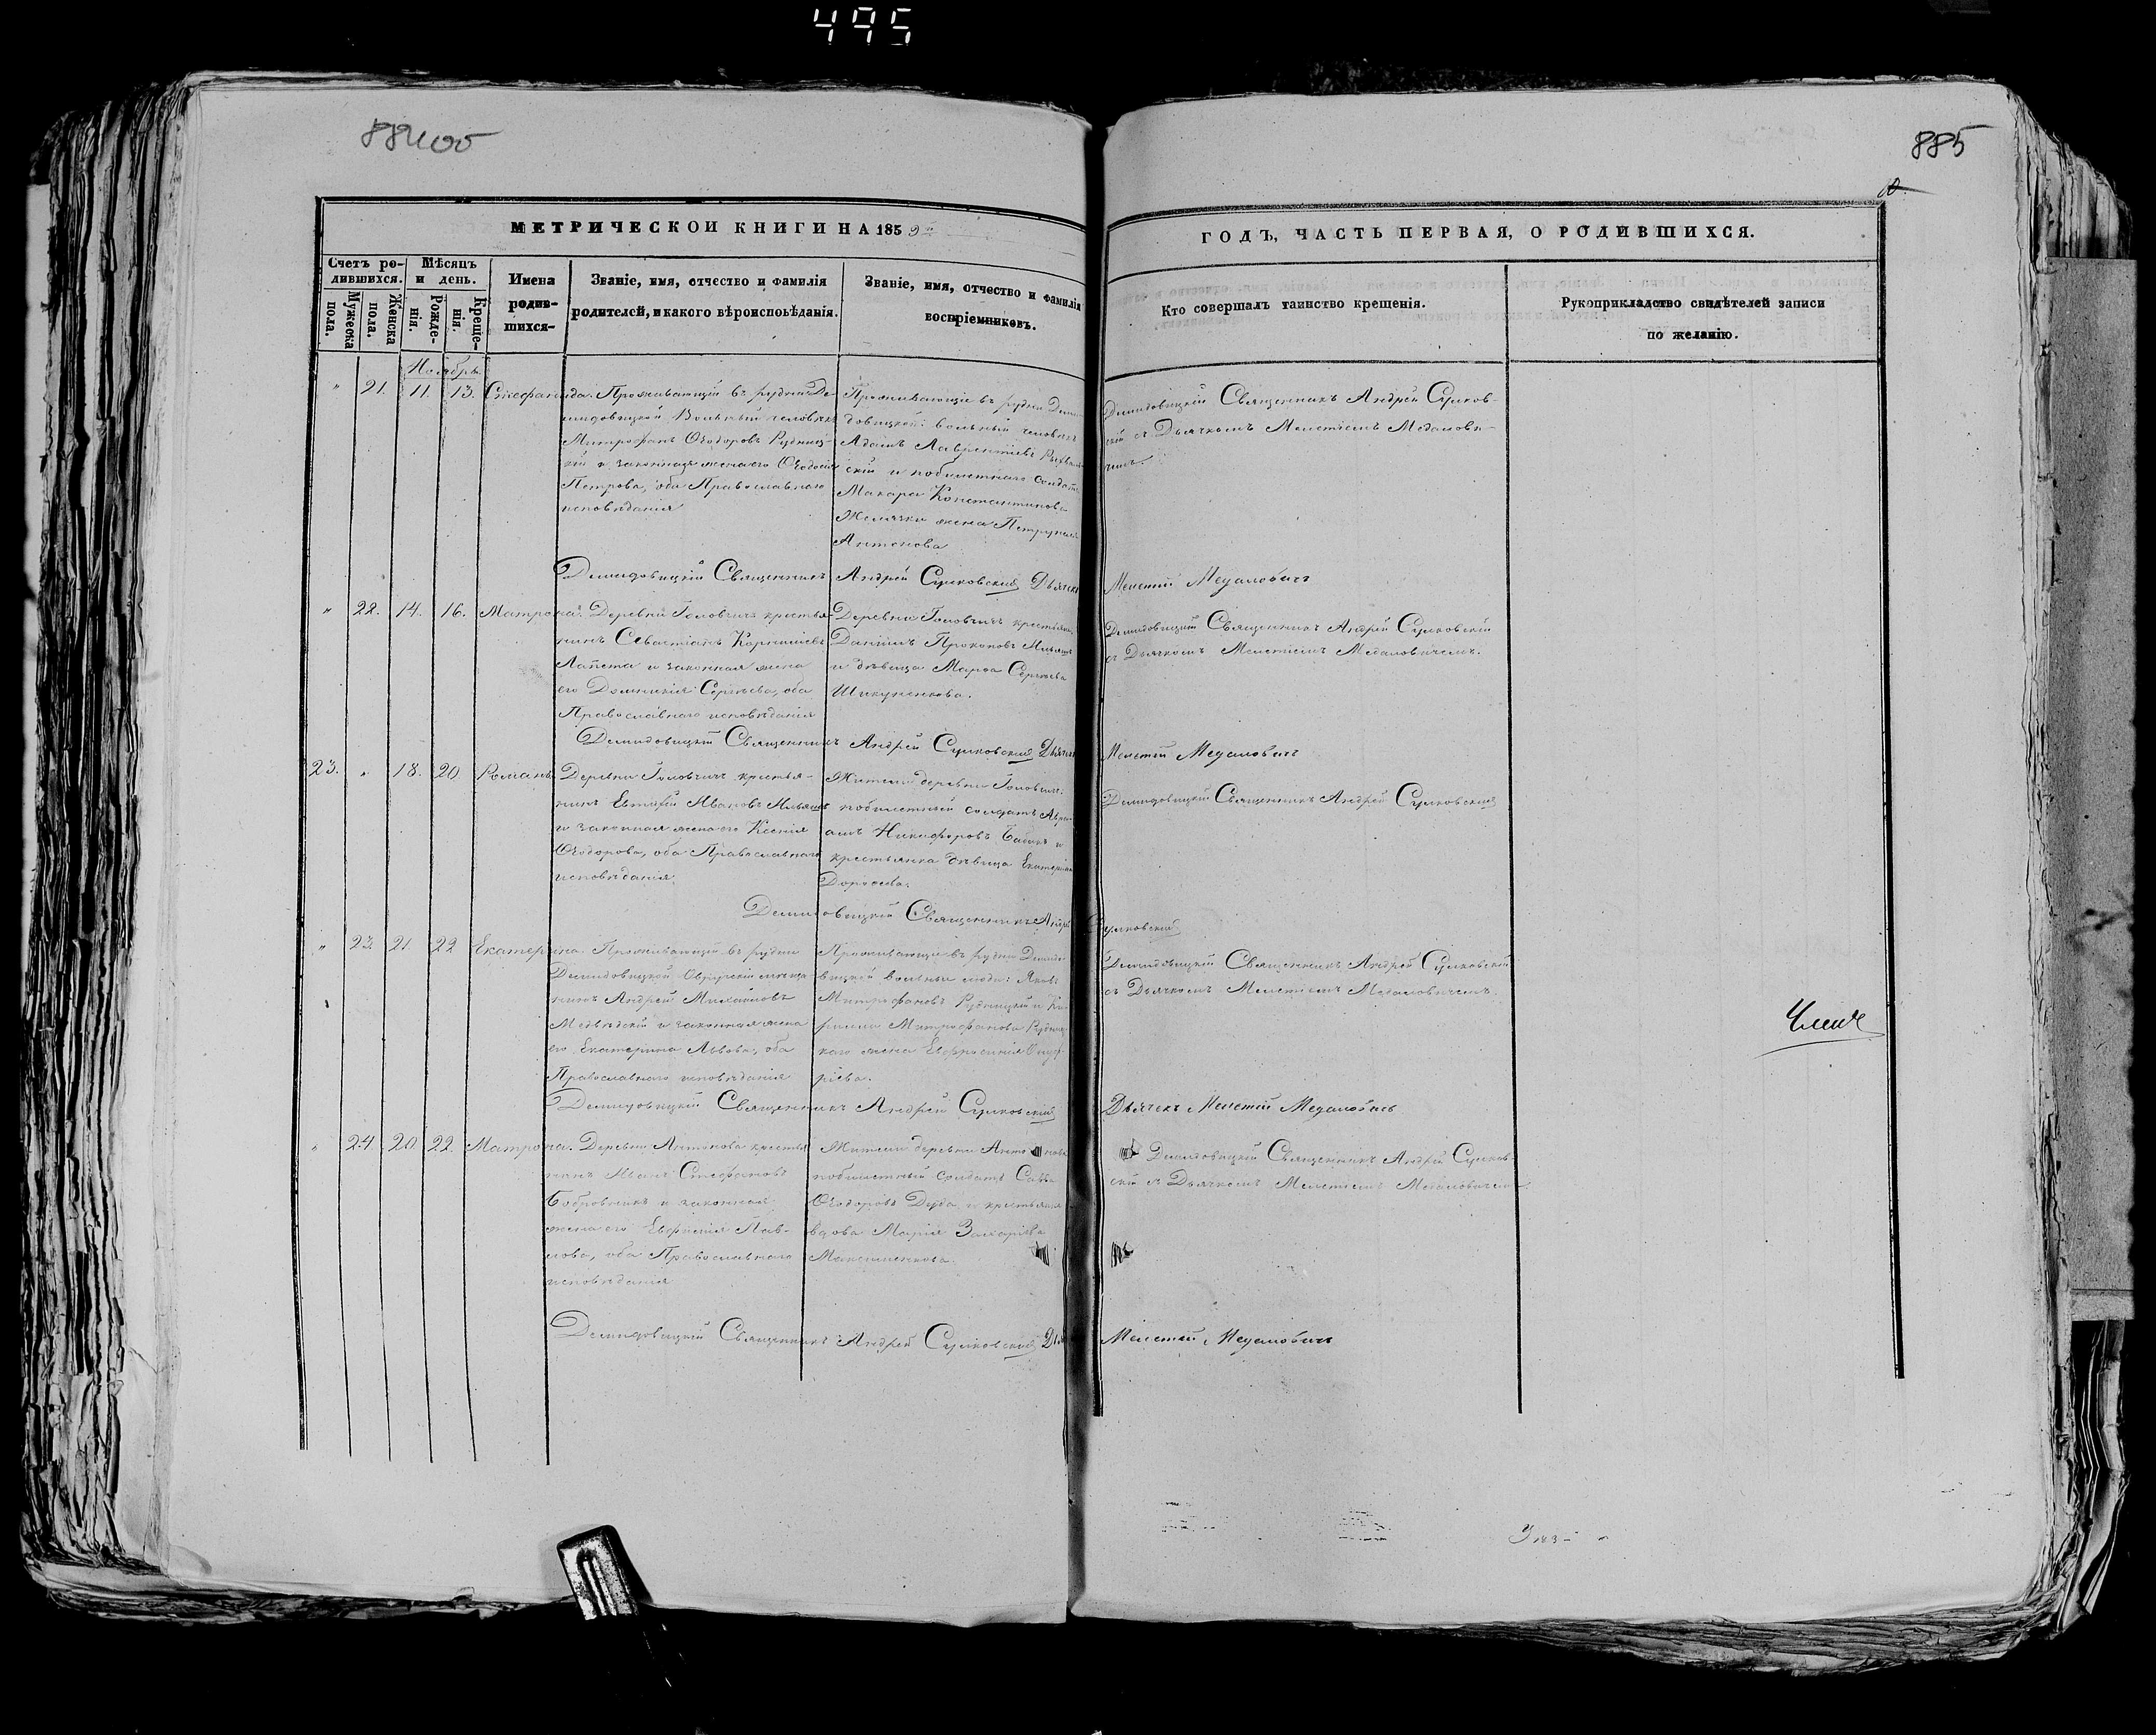 495
884 об
885
МЕТРИЧЕСКОЙ КНИГИ НА 1859й
ГОДЪ, ЧАСТЬ ПЕРВАЯ, О РОДИВШИХСЯ.
Счетъ ро-
дившихся.
Мужеска
пола.
Женска
пола.
Мѣсяцъ
и день.
Рожде-
нія.
Креще-
нія.
Имена
родив-
шихся-
Званіе, имя, отчество и фамилія
родителей, и какого вѣроисповѣданія.
Званіе, имя, отчество и фамилія
воспріемниковъ.
Кто совершалъ таинство крещенія.
Рукоприкладство свидѣтелей записи
по желанію.
Ноябрь
" 21. 11. 13. Стефанида.
Проживающій въ рудни Де-
мидовицкой Вольный человѣкъ
Митрофанъ Ѳеодоровъ Рудниц-
кій и законная жена его Ѳеодосія
Петрова, оба Православнаго
исповѣданія
Проживающіе въ рудни Деми-
довицкой: вольный человѣкъ
Адамъ Лаврентіевъ
скій и побилетнаго солдата
Макара Константинова
жена
Антонова
Демидовицкій Священникъ Андрей Сулков-
скій съ Дьячкомъ Мелетіемъ Медалови-
чемъ.
Демидовицкій Священникъ Андрей Сулковскій Дьячекъ Мелетій Медаловичъ
" 22. 14. 16. Матрона.
Деревни Головчичъ крестья-
нинъ Севастіанъ Корниліевъ
Лапета и законная жена
его Домникія Сергѣева, оба
Православнаго исповѣданія
Деревни Головчичъ крестьянинъ
Даніилъ Прокоповъ
и дѣвица Марѳа Сергѣева
Шикуненкова.
Демидовицкій Священникъ Андрей Сулковскій
съ Дьячкомъ Мелетіемъ Медаловичемъ.
Демидовицкій Священникъ Андрей Сулковскій Дьячекъ Мелетій Медаловичъ
23. " 18. 20 Романъ
Деревни Головчичъ крестья-
нинъ Евтихій Ивановъ
и законная жена его Ксенія
Ѳеодорова, оба Православнаго
исповѣданія.
Жители деревни Головчичъ:
побилетный солдатъ Авра-
амъ Никифоровъ и
крестьянка дѣвица Екатерина
Дороѳеева.
Демидовицкій Священникъ Андрей Сулковскій
Демидовицкій Священникъ Андрей Сулковскій
" 23. 21. 22 Екатерина.
Проживающій въ рудни
Демидовицкой Овручскій мѣща-
нинъ Андрей Михайловъ
Медвѣдскій и законная жена
его Екатерина Львова, оба
Православнаго исповѣданія
Проживающіе въ рудни Демидо-
вицкой вольные люди: Яковъ
Митрофановъ Рудницкій и Ки-
рилла Митрофанова Рудниц-
каго жена Евфросинія Онуф-
ріева.
Демидовицкій Священникъ Андрей Сулковскій
съ Дьячкомъ Мелетіемъ Медаловичемъ.
Демидовицкій Священникъ Андрей Сулковскій Дьячекъ Мелетій Медаловичъ
" 24. 20. 22. Матрона.
Деревни Антонова крестья-
нинъ Иванъ Стефановъ
Бобровникъ и законная
жена его Евфимія Пав-
лова, оба Православнаго
исповѣданія
Жители деревни Антонова
побилетный солдатъ Савва
Ѳеодоровъ Дуда и крестьянка
вдова Марія Захаріева
Максименкова.
Демидовицкій Священникъ Андрей Сулков-
скій съ Дьячкомъ Мелетіемъ Медаловичемъ
Демидовицкій Священникъ Андрей Сулковскій Дьячекъ Мелетій Медаловичъ